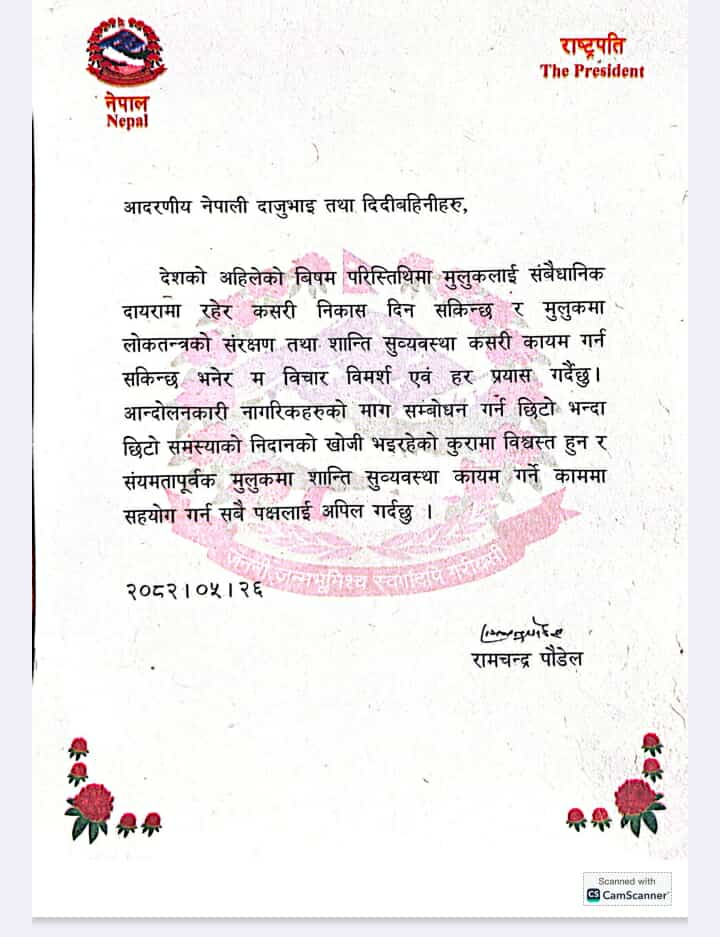 राष्ट्रपति
The President
नेपाल
Nepal
आदरणीय नेपाली दाजुभाइ तथा दिदीबहिनीहरु,
देशको अहिलेको बिषम परिस्तिथिमा मुलुकलाई संबैधानिक
दायरामा रहेर कसरी निकास दिन सकिन्छ र मुलुकमा
लोकतन्त्रको संरक्षण तथा शान्ति सुव्यवस्था कसरी कायम गर्न
सकिन्छ भनेर म विचार विमर्श एवं हर प्रयास गर्दैछु।
आन्दोलनकारी नागरिकहरुको माग सम्बोधन गर्न छिटो भन्दा
छिटो समस्याको निदानको खोजी भइरहेको कुरामा विश्वस्त हुन र
संयमतापूर्वक मुलुकमा शान्ति सुव्यवस्था कायम गर्ने काममा
सहयोग गर्न सबै पक्षलाई अपिल गर्दछु ।
जननी जन्मभूमिश्च स्वर्गादपि गरीयसी
२०८२।०५।२६
रामचन्द्र पौडेल
Scanned with
CS CamScanner